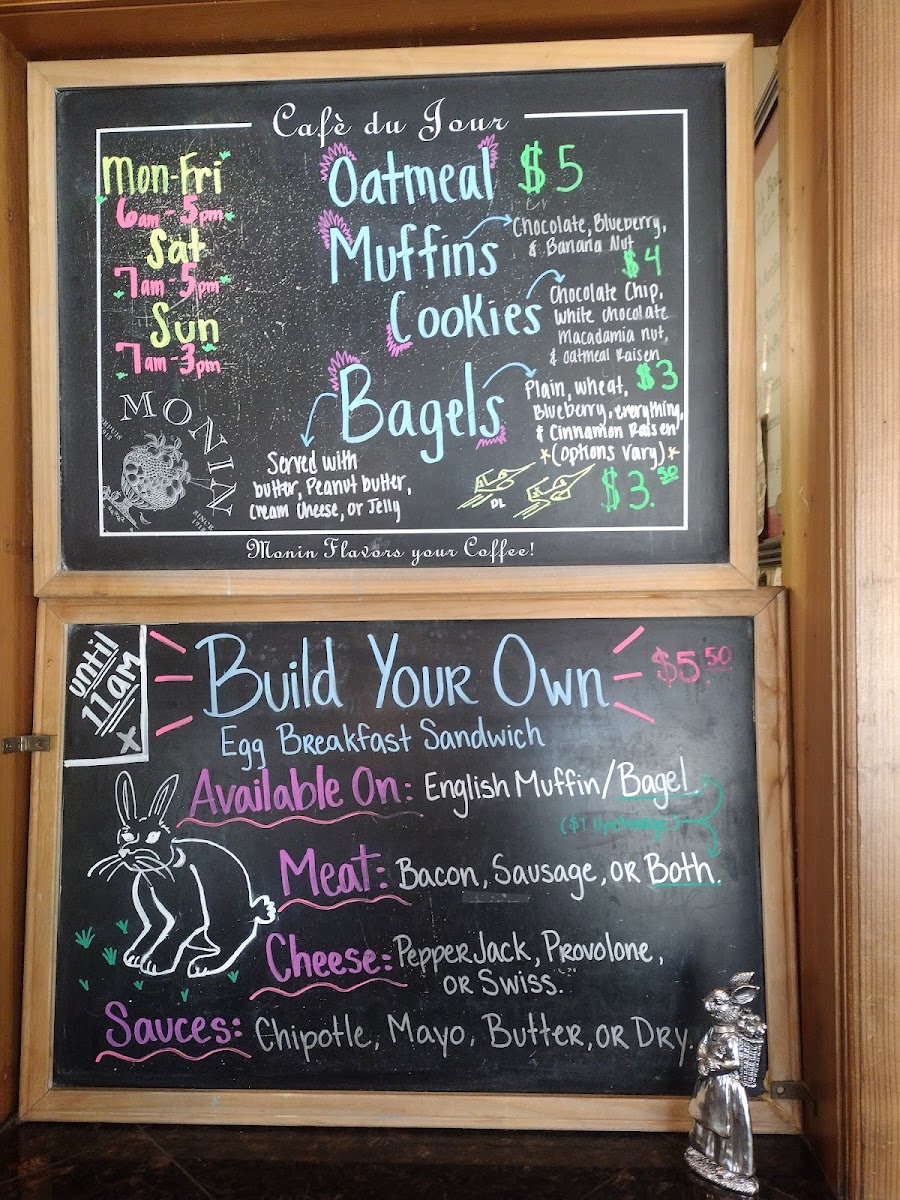 Cafè du Jour
Mon-Fri
6am - 5pm
Sat
7am - 5pm
Sun
7am - 3pm
Oatmeal $5
Muffins
Chocolate, Blueberry,
& Banana Nut
$4
Cookies
Chocolate Chip,
White chocolate
Macadamia nut,
& oatmeal Raisen
$3
Bagels
Plain, wheat,
Blueberry, everything,
& Cinnamon Raisen
*(options vary)*
$3.50
Served with
butter, Peanut butter,
cream cheese, or Jelly
DL
MONIN
DEPUIS
1912
SINCE
1912
Monin Flavors your Coffee!
until
11am
X
Build Your Own
$5.50
Egg Breakfast Sandwich
Available On: English Muffin/Bagel.
($1 Upcharge)
Meat: Bacon, Sausage, or Both.
Cheese: PepperJack, Provolone,
or Swiss.
Sauces: Chipotle, Mayo, Butter, or Dry.